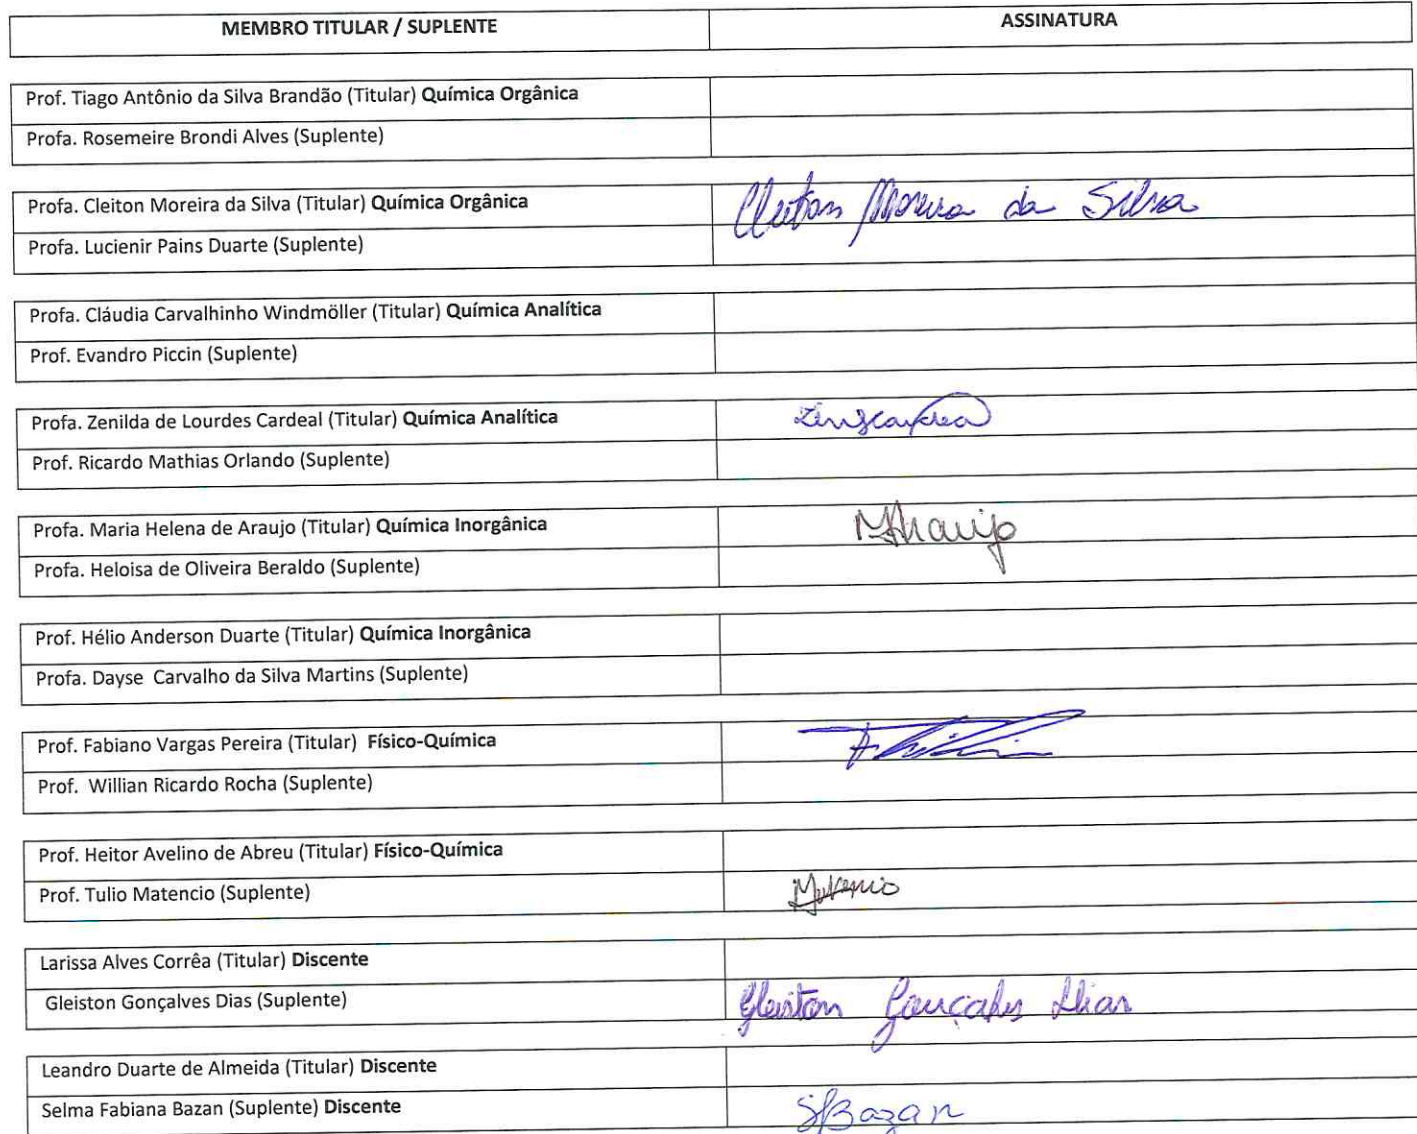 MEMBRO TITULAR / SUPLENTE ASSINATURA
Prof. Tiago Antônio da Silva Brandão (Titular) Química Orgânica
Profa. Rosemeire Brondi Alves (Suplente)
Profa. Cleiton Moreira da Silva (Titular) Química Orgânica Cleiton Moreira da Silva
Profa. Lucienir Pains Duarte (Suplente)
Profa. Cláudia Carvalhinho Windmöller (Titular) Química Analítica
Prof. Evandro Piccin (Suplente)
Profa. Zenilda de Lourdes Cardeal (Titular) Química Analítica
Prof. Ricardo Mathias Orlando (Suplente)
Profa. Maria Helena de Araujo (Titular) Química Inorgânica MHaraujo
Profa. Heloisa de Oliveira Beraldo (Suplente)
Prof. Hélio Anderson Duarte (Titular) Química Inorgânica
Profa. Dayse Carvalho da Silva Martins (Suplente)
Prof. Fabiano Vargas Pereira (Titular) Físico-Química
Prof. Willian Ricardo Rocha (Suplente)
Prof. Heitor Avelino de Abreu (Titular) Físico-Química
Prof. Tulio Matencio (Suplente)
Larissa Alves Corrêa (Titular) Discente
Gleiston Gonçalves Dias (Suplente) Gleiston Gonçalves Dias
Leandro Duarte de Almeida (Titular) Discente
Selma Fabiana Bazan (Suplente) Discente SFBazan